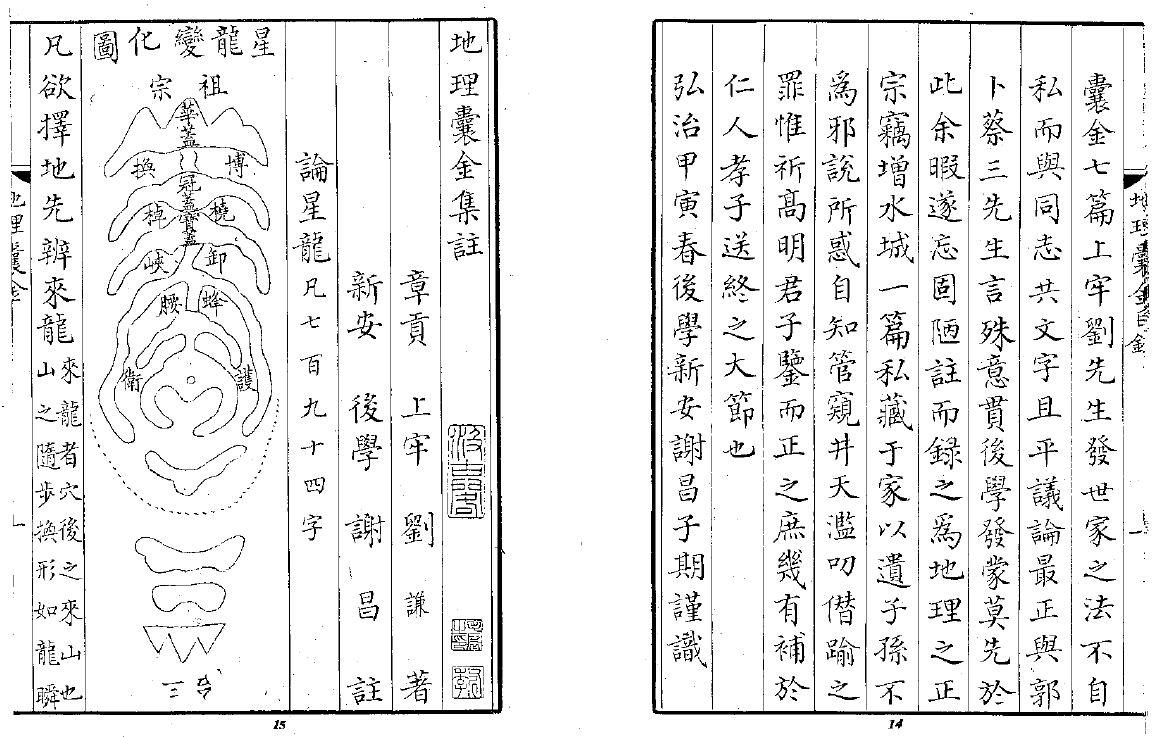 囊金七篇上牢劉先生發世家之法不自
私而與同志共文字且平議論最正與郭
卜蔡三先生言殊意貫後學發蒙莫先於
此余暇遂忘固陋註而録之爲地理之正
宗竊增水城一篇私藏于家以遺子孫不
爲邪說所惑自知管窺井天濫叨僭踰之
罪惟祈高明君子鑒而正之庶幾有補於
仁人孝子送終之大節也
弘治甲寅春後學新安謝昌子期謹識
14
地理囊金集註
章貢 上牢 劉謙 著
新安 後學 謝昌 註
論星龍凡七百九十四字
星龍變化圖
祖宗
華蓋
博換
冠蓋寶蓋
橈棹
卸峽
蜂腰
護衛
三台
凡欲擇地先辨來龍來龍者穴後之來山也
山之隨步換形如龍瞬
地理囊金
15